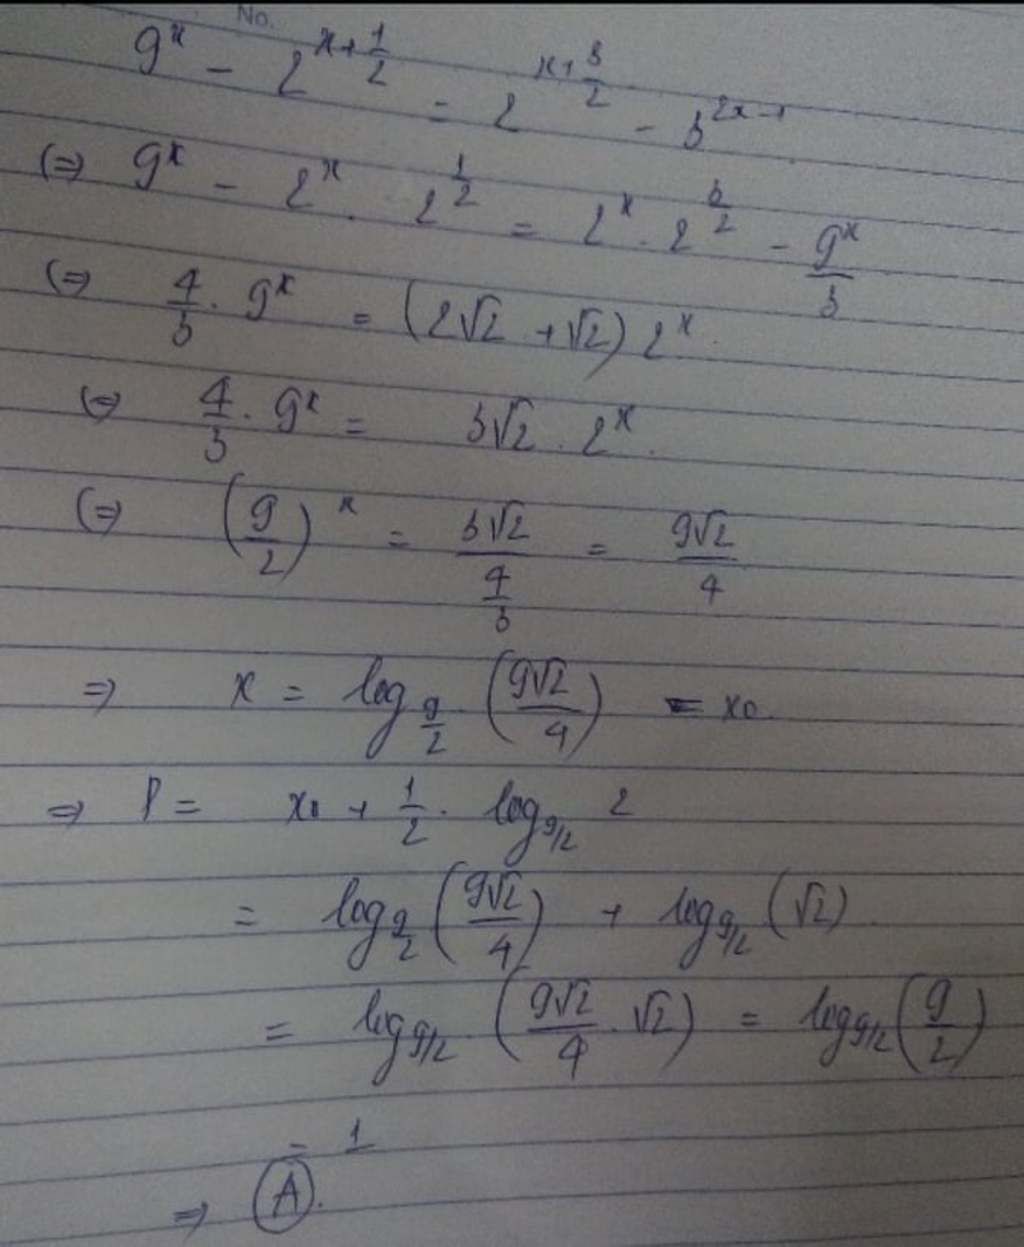 No.
9^x - 2^{x+\frac{1}{2}} = 2^{x+\frac{3}{2}} - 3^{2x-1}
(=) 9^x - 2^x . 2^{\frac{1}{2}} = 2^x . 2^{\frac{3}{2}} - \frac{9^x}{3}
(=) \frac{4}{3} . 9^x = (2√2 + √2) 2^x .
(=) \frac{4}{3} . 9^x = 3√2 . 2^x .
(=) (\frac{9}{2})^x = \frac{3√2}{\frac{4}{3}} = \frac{9√2}{4}
=> x = log_{\frac{9}{2}} (\frac{9√2}{4}) = x_0
=> P = x_0 + \frac{1}{2} . log_{9/2} 2
= log_{\frac{9}{2}} (\frac{9√2}{4}) + log_{9/2} (√2)
= log_{9/2} (\frac{9√2}{4} . √2) = log_{9/2} (\frac{9}{2})
= 1
=> A.